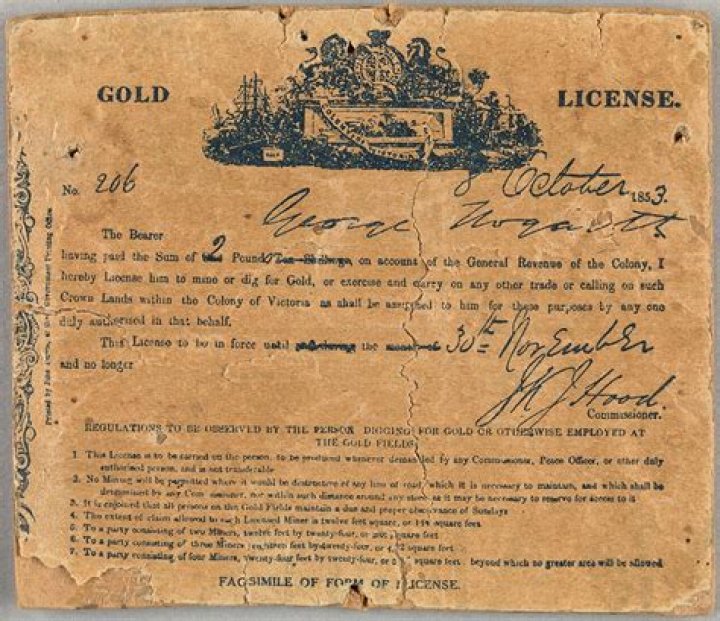 GOLD LICENSE.
COLONY OF VICTORIA
No. 206
8 October 1853.
George Hogarth
The Bearer
having paid the Sum of 2 Pounds Ten Shillings, on account of the General Revenue of the Colony, I
hereby License him to mine or dig for Gold, or exercise and carry on any other trade or calling on such
Crown Lands within the Colony of Victoria as shall be assigned to him for these purposes by any one
duly authorised in that behalf.
This License to be in force until and during the month of 30th November
and no longer
Hood.
Commissioner.
REGULATIONS TO BE OBSERVED BY THE PERSON DIGGING FOR GOLD OR OTHERWISE EMPLOYED AT
THE GOLD FIELDS
1. This License is to be carried on the person, to be produced whenever demanded by any Commissioner, Peace Officer, or other duly
authorised person, and is not transferable
2. No Mining will be permitted where it would be destructive of any line of road, which it is necessary to maintain, and which shall be
determined by any Commissioner, nor within such distance around any store as it may be necessary to reserve for access to it
3. It is enjoined that all persons on the Gold Fields maintain a due and proper observance of Sundays
4. The extent of claim allowed to each Licensed Miner is twelve feet square, or 144 square feet
5. To a party consisting of two Miners, twelve feet by twenty-four, or square feet
6. To a party consisting of three Miners feet by twenty-four, or square feet
7. To a party consisting of four Miners, twenty-four feet by twenty-four, or square feet beyond which no greater area will be allowed
FACSIMILE OF FORM OF LICENSE.
Printed by John at the Government Printing Office